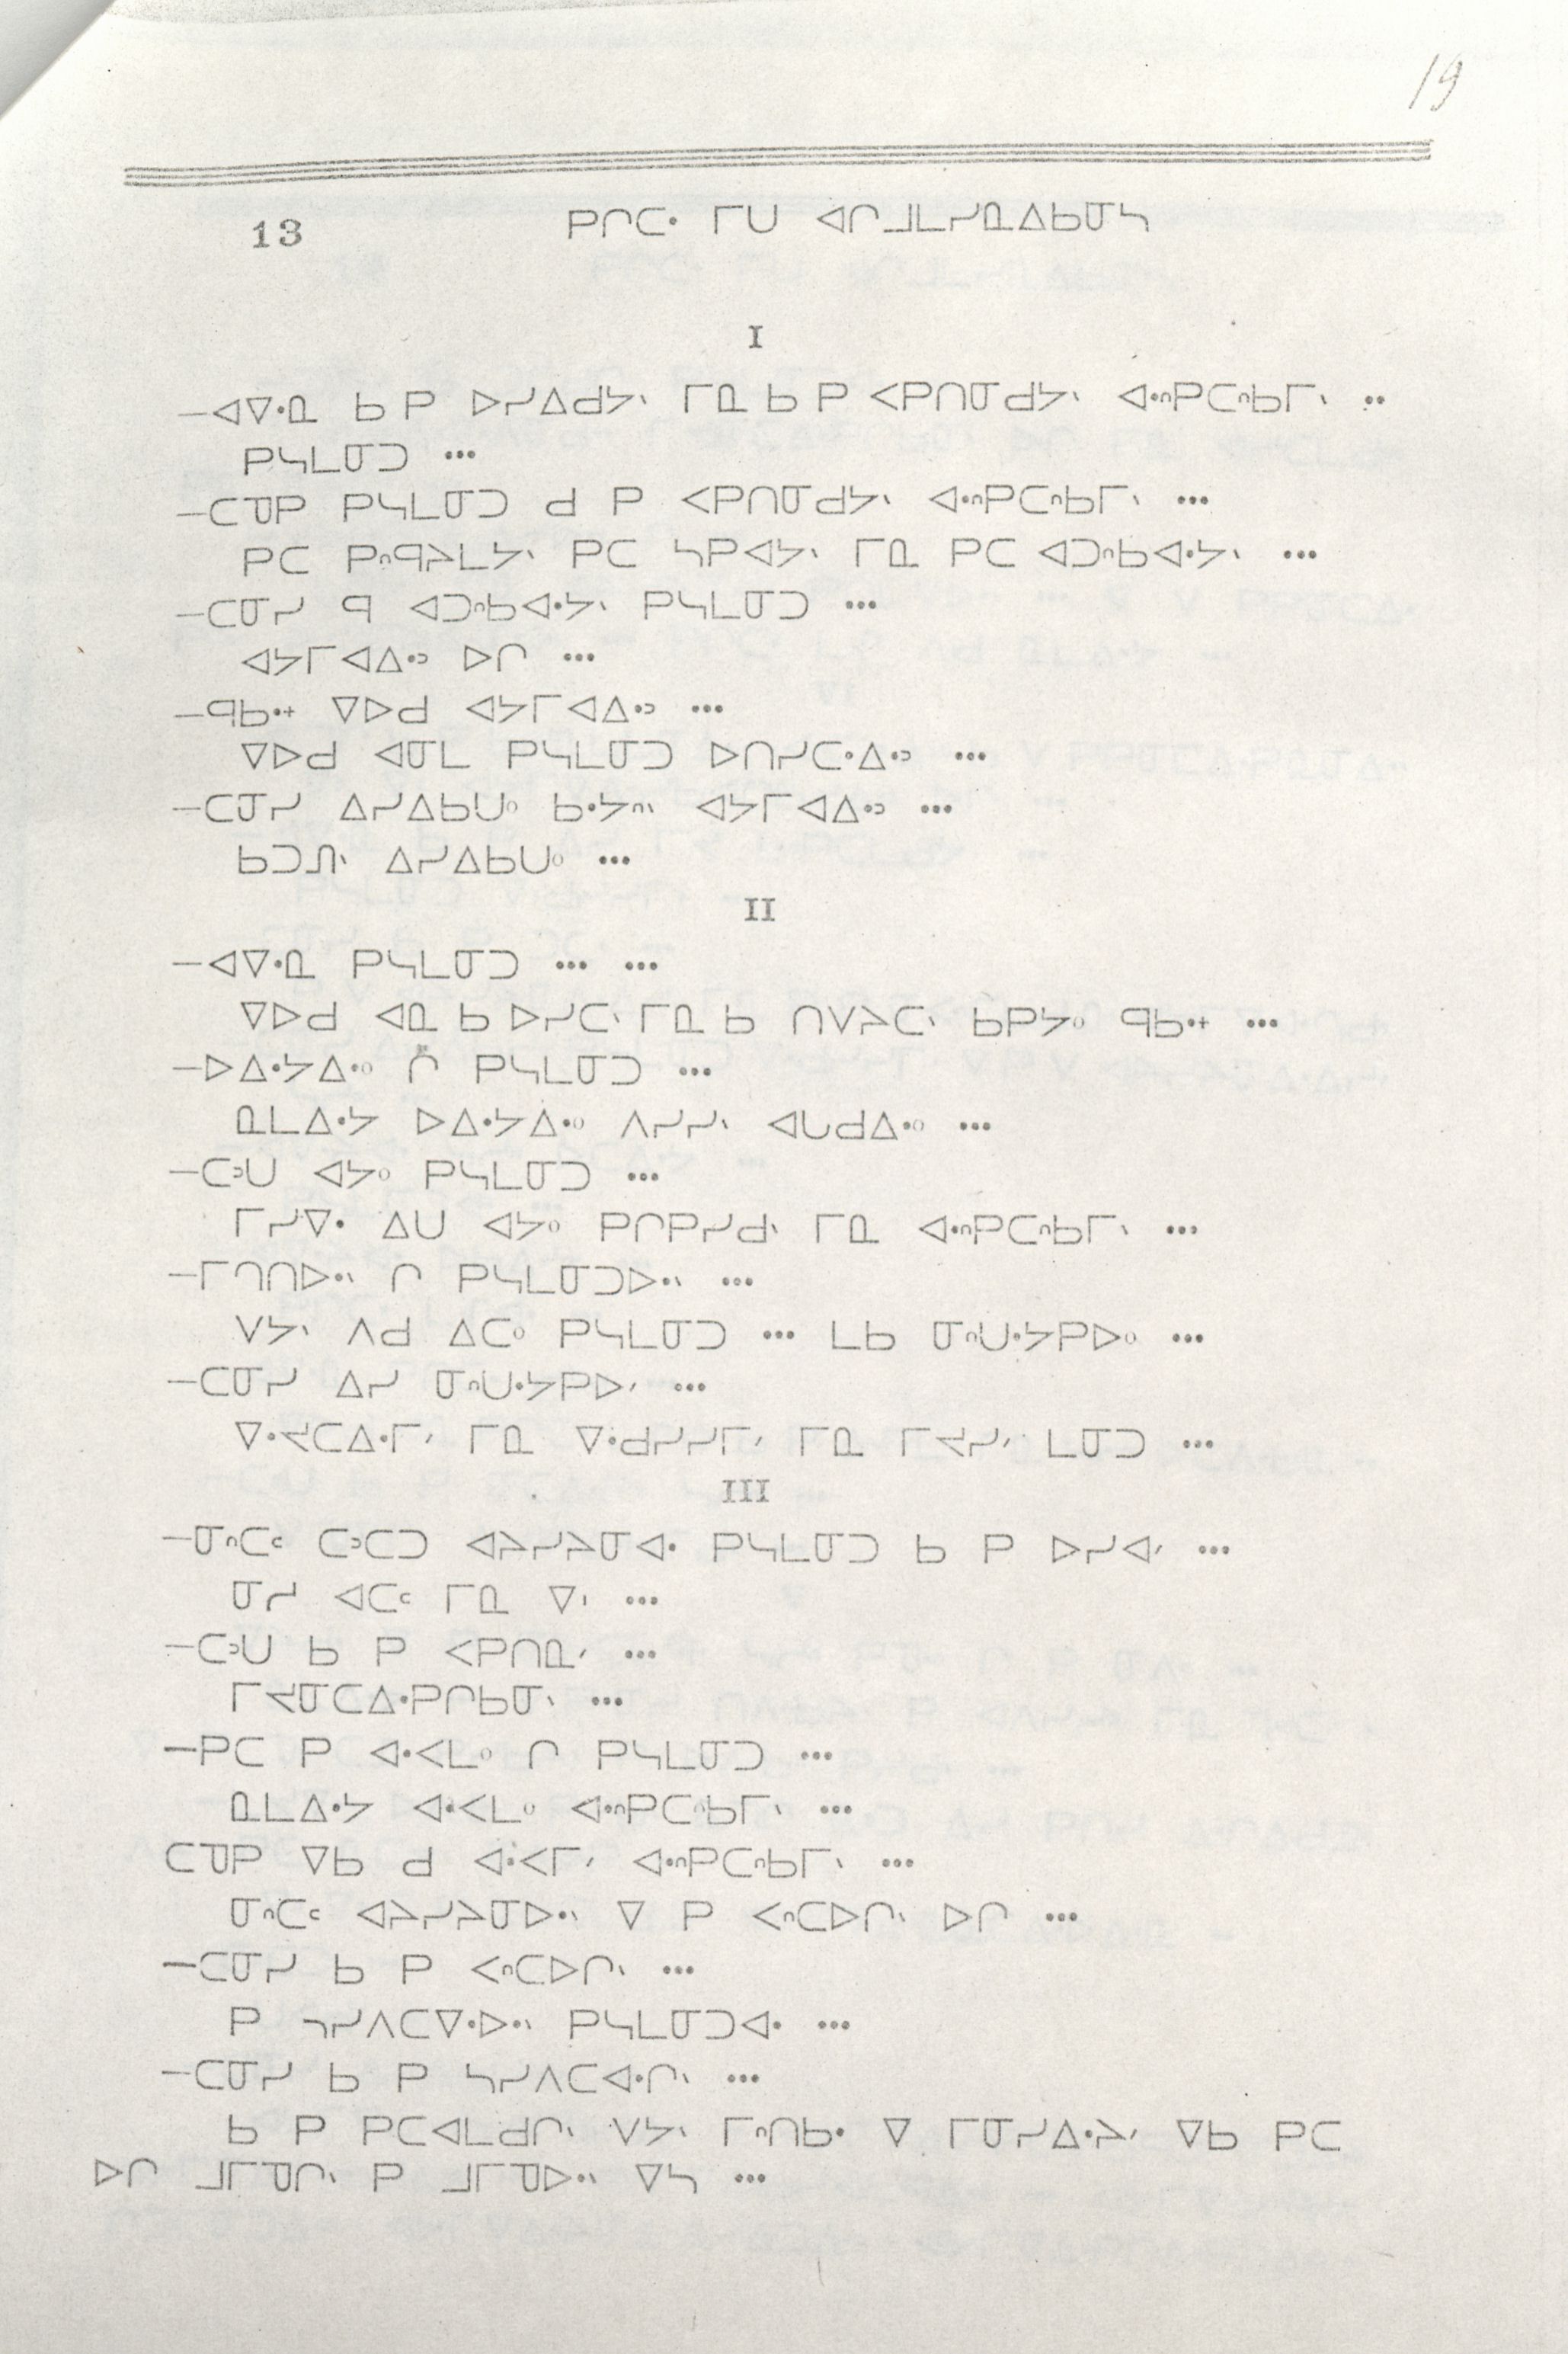 19
13 ᑭᒋᑕᐧ ᒥᑌ ᐊᒋᒧᒪᓯᓇᐃᑲᓂᓴ
I
—ᐊᐯᐧᓇ ᑲ ᑭ ᐅᓯᐃᑯᔭᐠ ᒥᓇ ᑲ ᑭ ᐸᑭᑎᓂᑯᔭᐠ ᐊᐧᐢᑭᑕᐢᑲᒥᐠ ••
ᑭᓴᒪᓂᑐ •••
—ᑕᓀᑭ ᑭᓴᒪᓂᑐ ᑯ ᑭ ᐸᑭᑎᓂᑯᔭᐠ ᐊᐧᐢᑭᑕᐢᑲᒥᐠ •••
ᑭᑕ ᑭᐢᑫᔨᒪᔭᐠ ᑭᑕ ᓴᑭᐊᔭᐠ ᒥᓇ ᑭᑕ ᐊᑐᐢᑲᐊᐧᔭᐠ •••
—ᑕᓂᓯ ᑫ ᐊᑐᐢᑲᐊᐧᔭᐠ ᑭᓴᒪᓂᑐ •••
ᐊᔭᒥᐊᐃᐧᐣ ᐅᒋ •••
—ᑫᑲᐧᕀ ᐁᐅᑯ ᐊᔭᒥᐊᐃᐧᐣ •••
ᐁᐅᑯ ᐊᓂᒪ ᑭᓴᒪᓂᑐ ᐅᑎᓯᑕᐧᐃᐧᐣ •••
—ᑕᓂᓯ ᐃᓯᐃᑲᑌᐤ ᑲᐧᔭᐢᐠ ᐊᔭᒥᐊᐃᐧᐣ •••
ᑲᑐᓕᐠ ᐃᓯᐃᑲᑌᐤ •••
II
—ᐊᐯᐧᓇ ᑭᓴᒪᓂᑐ ••• •••
ᐁᐅᑯ ᐊᓇ ᑲ ᐅᓯᑕᐠ ᒥᓇ ᑲ ᑎᐯᔨᑕᐠ ᑲᑭᔭᐤ ᑫᑲᐧᕀ •••
—ᐅᐃᐧᔭᐃᐧᐤ ᒋ ᑭᓴᒪᓂᑐ •••
ᓇᒪᐃᐧᔭ ᐅᐃᐧᔭᐃᐧᐤ ᐱᓯᓯᐠ ᐊᑌᑯᐃᐧᐤ •••
—ᑕᐣᑌ ᐊᔭᐤ ᑭᓴᒪᓂᑐ •••
ᒥᓯᐁᐧ ᐃᑌ ᐊᔭᐤ ᑭᒋᑭᓯᑯᐠ ᒥᓇ ᐊᐧᐢᑭᑕᐢᑲᒥᐠ •••
—ᒥᑎᑎᐅᐧᐠ ᒋ ᑭᓴᒪᓂᑐᐅᐧᐠ •••
ᐯᔭᐠ ᐱᑯ ᐃᑕᐤ ᑭᓴᒪᓂᑐ ••• ᒪᑲ ᓂᐢᑌᐧᔭᑭᐅᐤ •••
—ᑕᓂᓯ ᐃᓯ ᓂᐢᑌᐧᔭᑭᐅᐟ •••
ᐁᐧᔪᑕᐃᐧᒥᐟ ᒥᓇ ᐁᐧᑯᓯᓯᒥᐟ ᒥᓇ ᒥᔪᓯᐟ ᒪᓂᑐ •••
III
—ᓂᐢᑕᒼ ᑕᐣᑕᑐ ᐊᔨᓯᔨᓂᐊᐧ ᑭᓴᒪᓂᑐ ᑲ ᑭ ᐅᓯᐊᐟ •••
ᓂᓯ ᐊᑕᒼ ᒥᓇ ᐁᐠ •••
—ᑕᐣᑌ ᑲ ᑭ ᐸᑭᑎᓇᐟ •••
ᒥᔪᓂᑕᐃᐧᑭᒋᑲᓂᐠ •••
—ᑭᑕ ᑭ ᐊᐧᐸᒪᐤ ᒋ ᑭᓴᒪᓂᑐ •••
ᓇᒪᐃᐧᔭ ᐊᐧᐸᒪᐤ ᐊᐧᐢᑭᑕᐢᑲᒥᐠ •••
ᑕᓀᑭ ᐁᑲ ᑯ ᐊᐧᐸᒥᐟ ᐊᐧᐢᑭᑕᐢᑲᒥᐠ •••
ᓂᐢᑕᒼ ᐊᔨᓯᔨᓂᐅᐧᐠ ᐁ ᑭ ᐸᐢᑕᐅᒋᐠ ᐅᒋ •••
—ᑕᓂᓯ ᑲ ᑭ ᐸᐢᑕᐅᒋᐠ •••
ᑭ ᓭᓯᐱᑕᐁᐧᐅᐧᐠ ᑭᓴᒪᓂᑐᐊᐧ •••
—ᑕᓂᓯ ᑲ ᑭ ᓴᓯᐱᑕᐊᐧᒋᐠ •••
ᑲ ᑭ ᑭᑕᐊᒪᑯᒋᐠ ᐯᔭᐠ ᒥᐢᑎᑲᐧ ᐁ ᒥᓂᓯᐃᐧᔨᐟ ᐁᑲ ᑭᑕ
ᐅᒋ ᒧᒥᓀᒋᐠ ᑭ ᒧᒥᓀᐅᐧᐠ ᐁᓴ •••